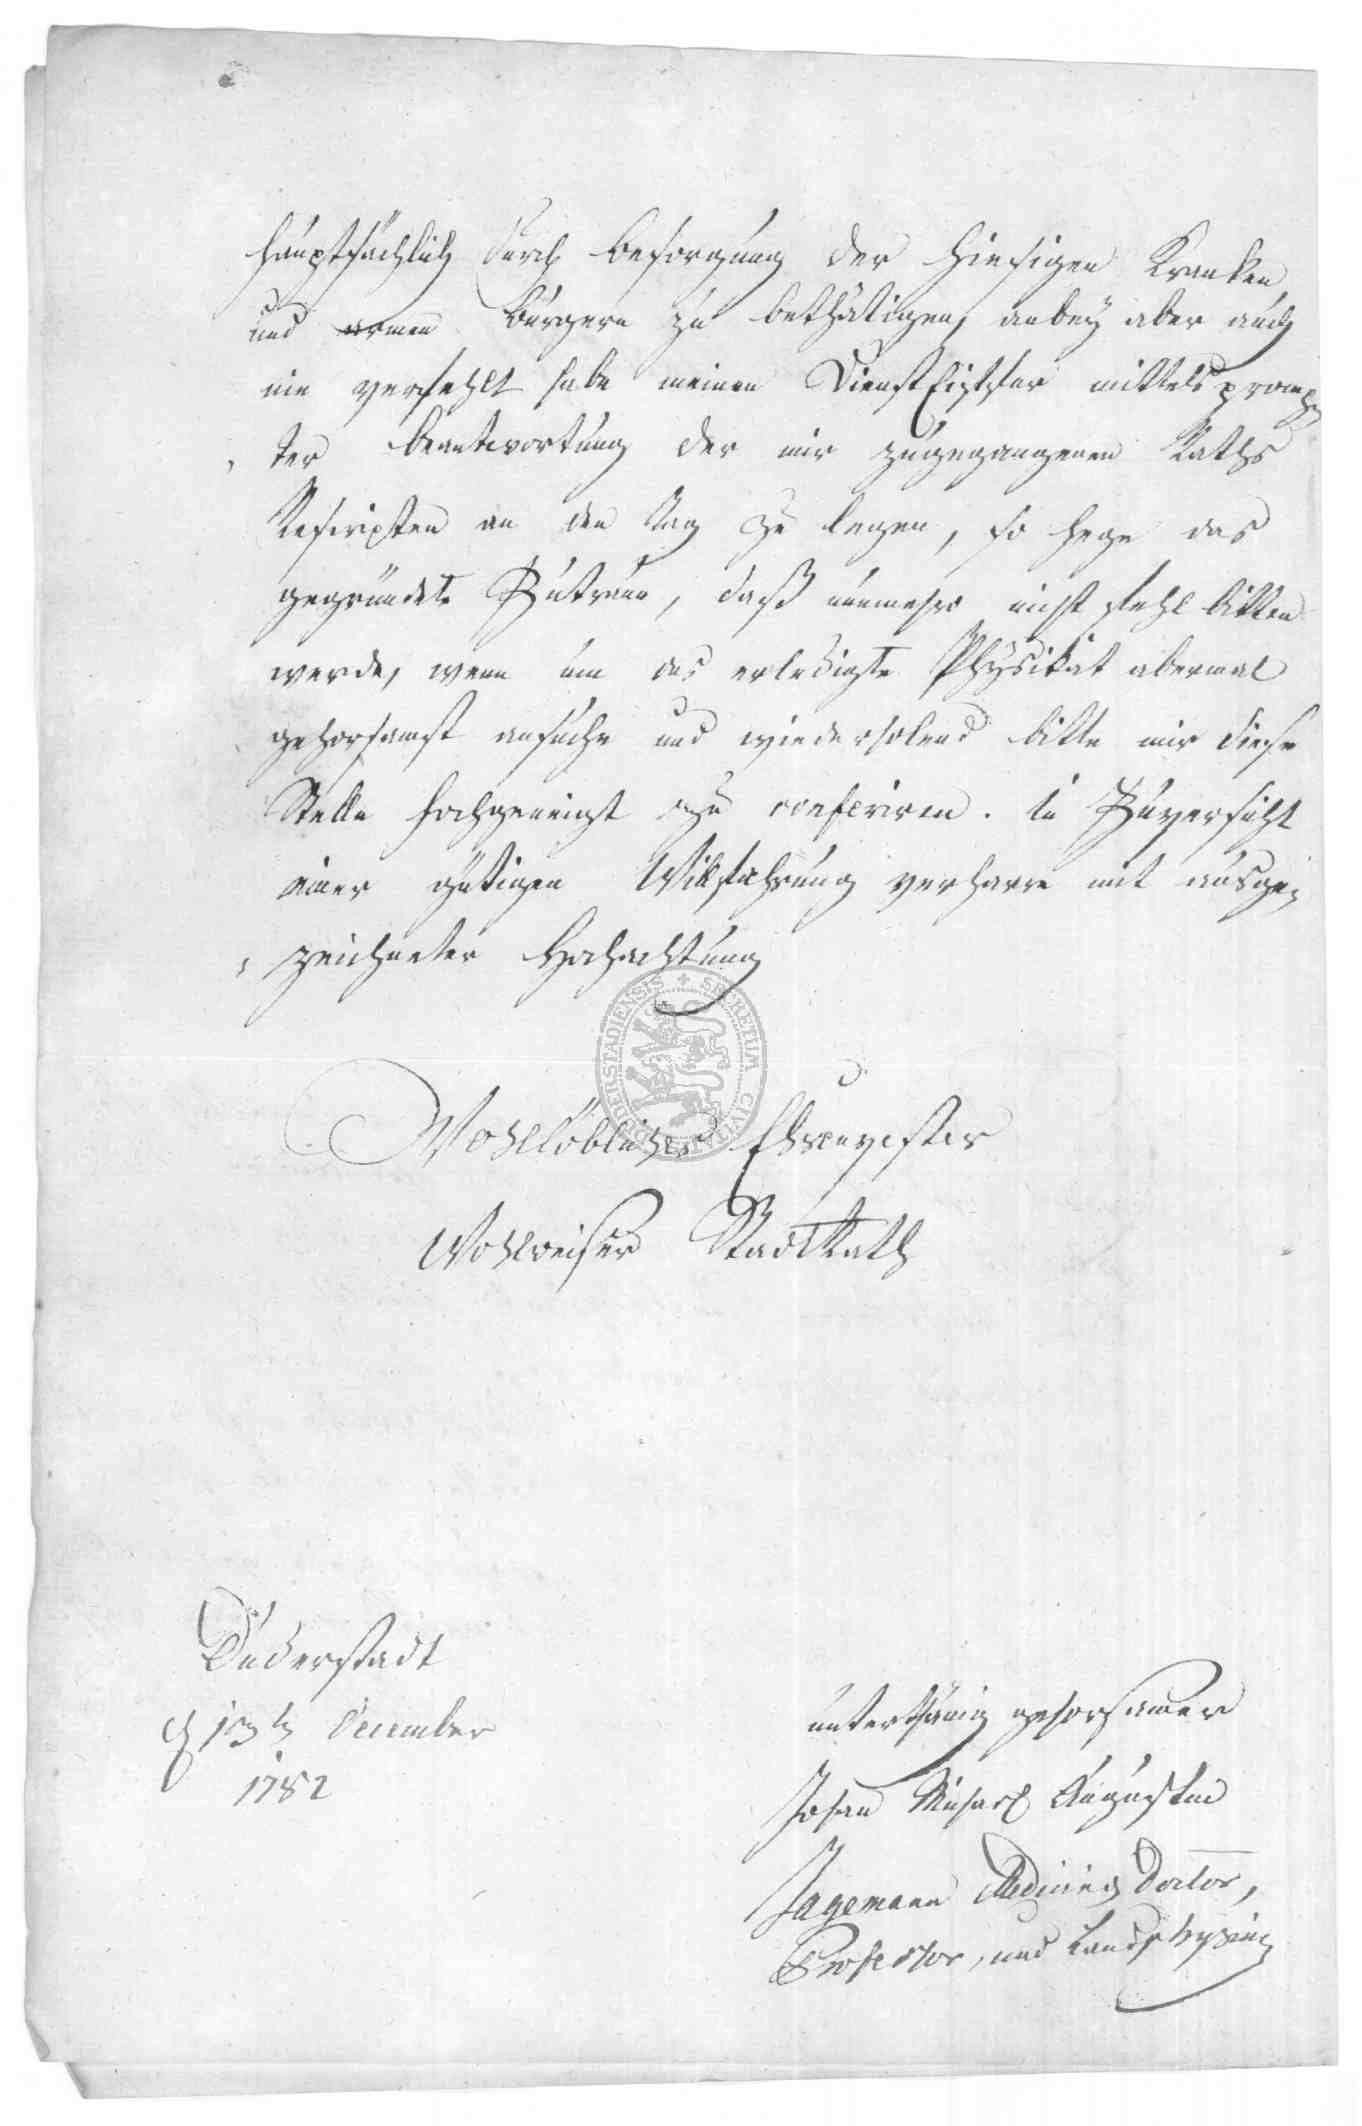 hauptsächlich durch besorgung der hiesigen Kranken
und armen bürgern zu bethätigen, anbey aber auch
nie verfehlt habe meinen Diensteifer mittels promp-
ter beantwortung der mir zugegangenen Raths
Rescripten an den Tag zu legen, so hege das
gegründete Zutraun, daß nunmehro nicht fehl bitten
werde, wenn um das erledigte Physikat abermal
gehorsamst ansuche und wiederholend bitte mir diese
Stelle hochgeneigt zu conferiren. in Zuversicht
einer gütigen Willfahrung verharre mit ausge-
zeichneter Hochachtung
SECRETUM CIVITATIS DUDERSTADIENSIS
Wohllöblicher Ehrenvester
Wohlweiser StadtRath
Duderstadt
d 13t December
1782
unterthänig gehorsamer
Johan Michael Augustin
Jagemann Medicin Doctor,
Professor, und Landphysicus